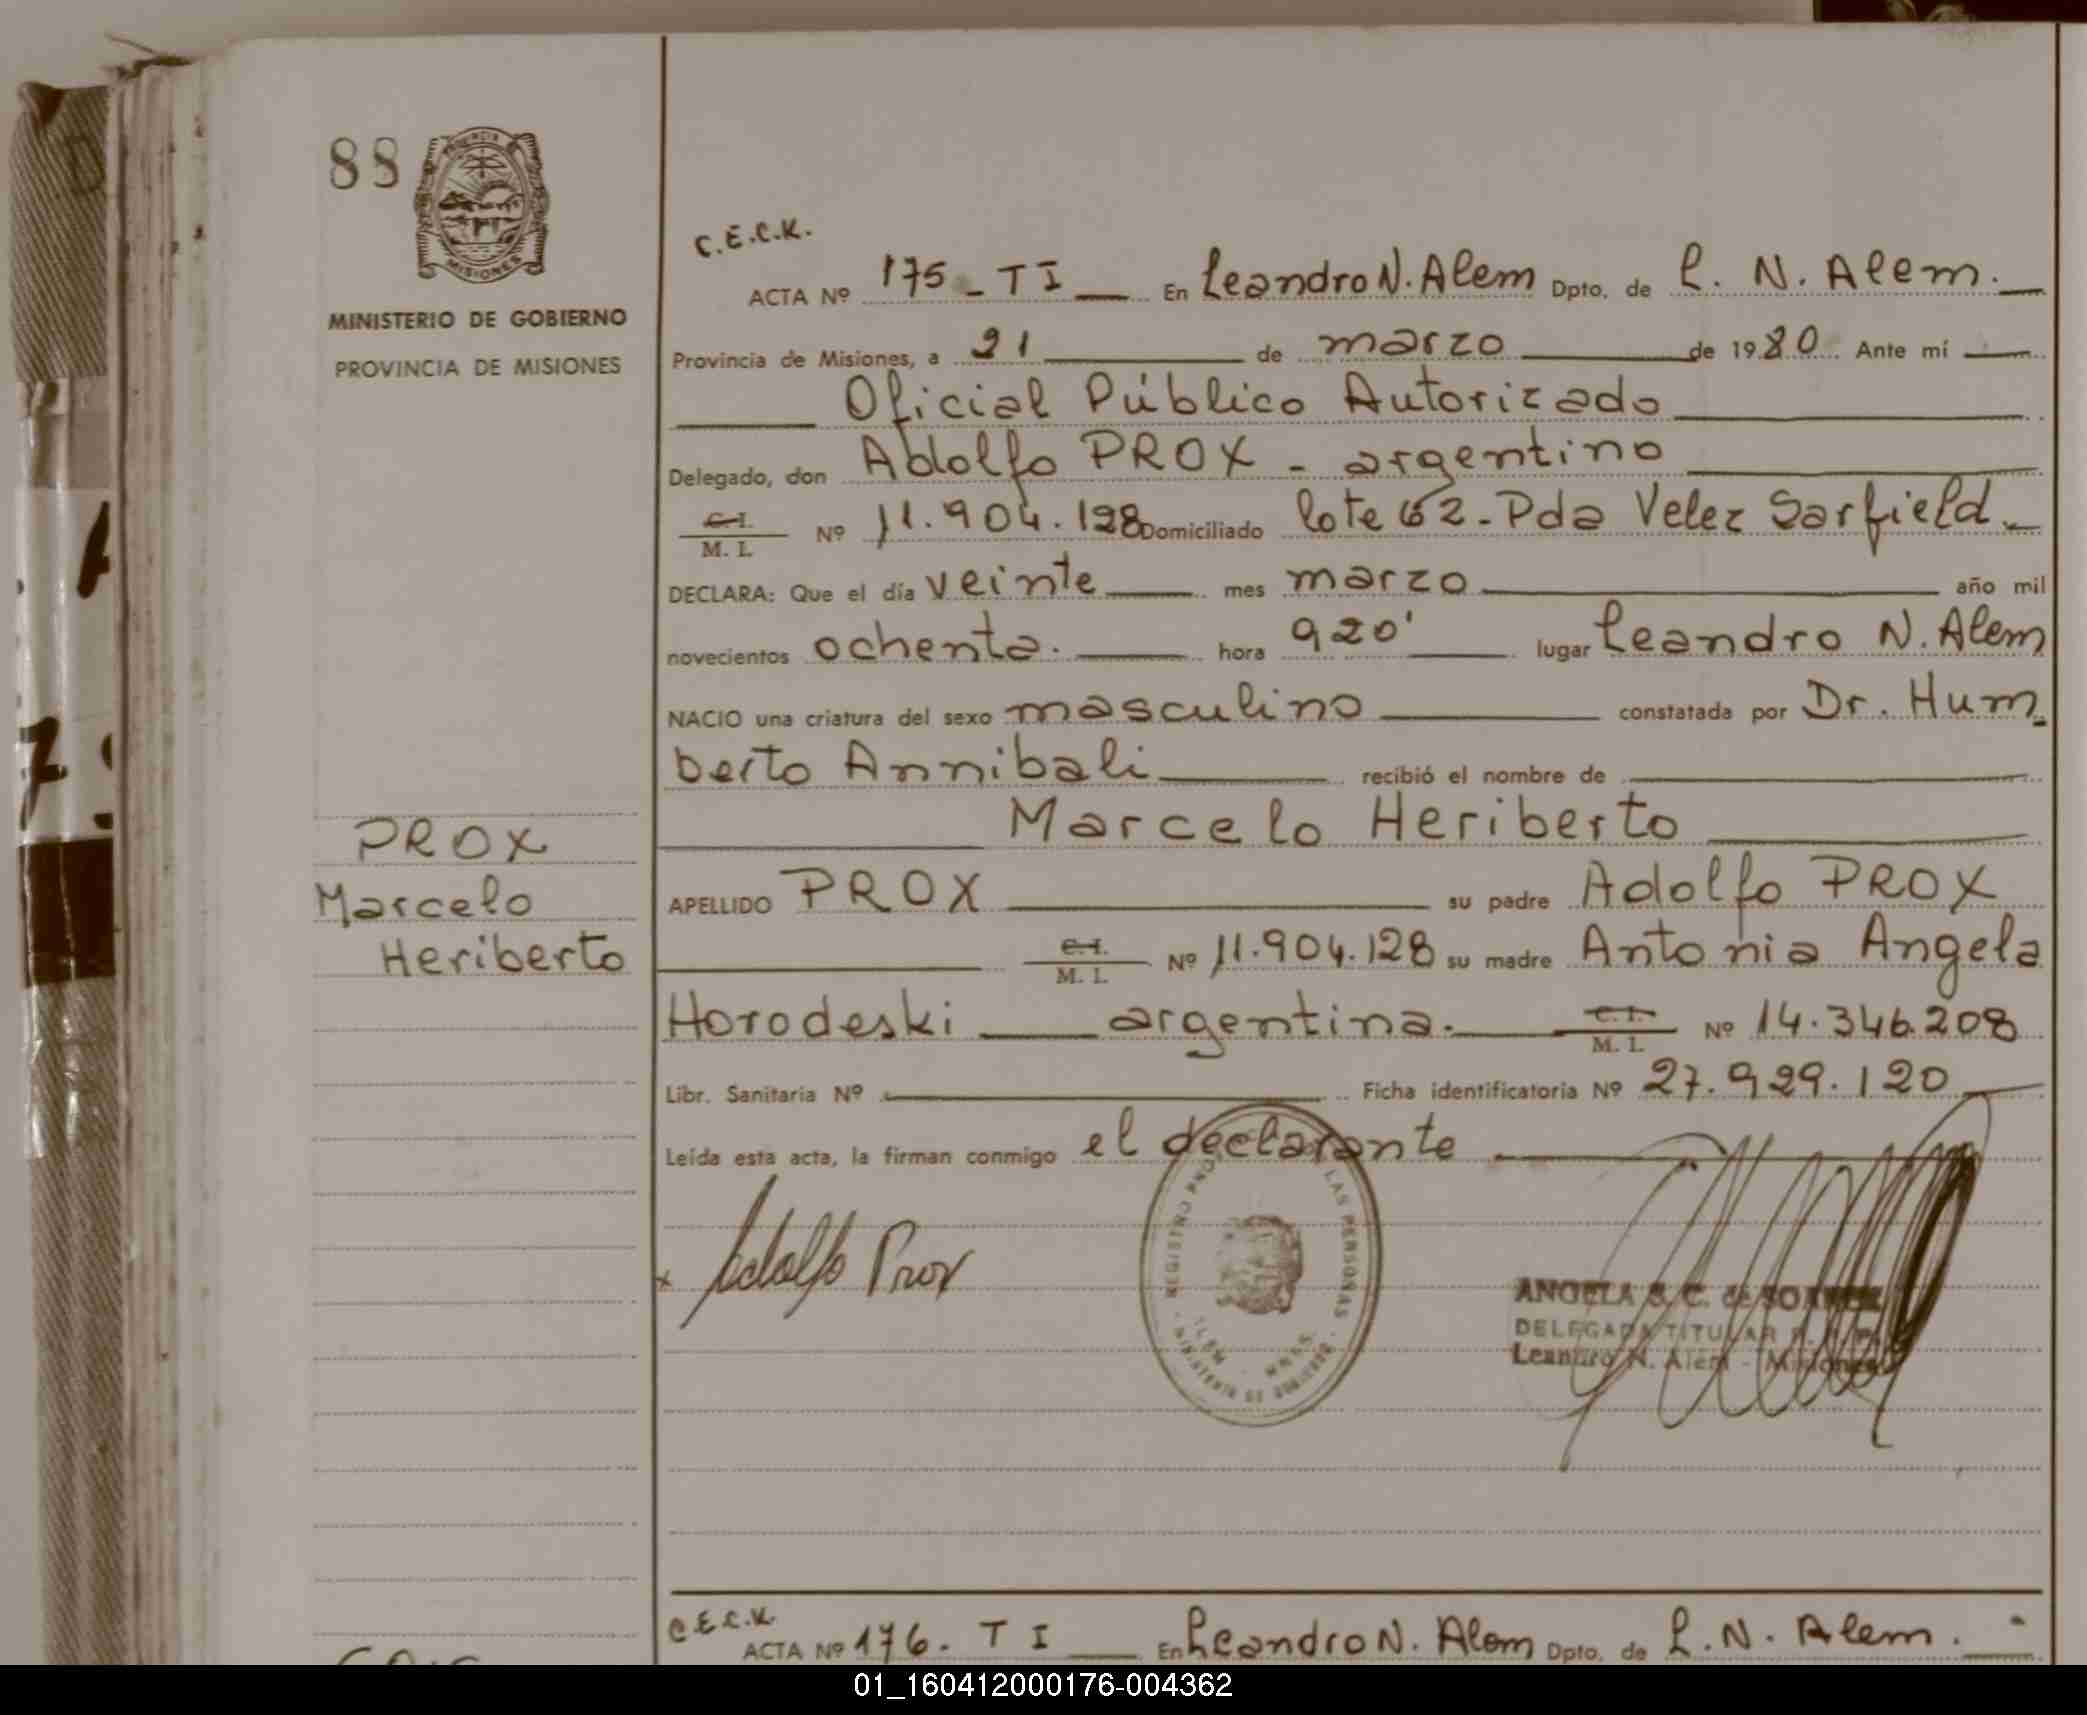 88
PROVINCIA
MISIONES
MINISTERIO DE GOBIERNO
PROVINCIA DE MISIONES
C.E.C.K.
ACTA Nº 175 - T I En Leandro N. Alem Dpto. de L. N. Alem.
Provincia de Misiones, a 21 de marzo de 1980 Ante mí
Oficial Público Autorizado
Delegado, don Adolfo PROX - argentino
C.I. M. I. Nº 11.904.128 Domiciliado lote 62 - Pda Velez Sarfield.
DECLARA: Que el día veinte mes marzo año mil
novecientos ochenta. hora 920' lugar Leandro N. Alem
NACIO una criatura del sexo masculino constatada por Dr. Hum
berto Annibali recibió el nombre de
Marcelo Heriberto
PROX
Marcelo
Heriberto
APELLIDO PROX su padre Adolfo PROX
C.I. M. I. Nº 11.904.128 su madre Antonia Angela
Horodeski argentina. C.I. M. I. Nº 14.346.208
Libr. Sanitaria Nº Ficha identificatoria Nº 27.929.120
Leída esta acta, la firman conmigo el declarante
x Adolfo Prox
REGISTRO LAS PERSONAS
MINISTERIO DE GOBIERNO
ANGELA S. C. de
DELEGADA TITULAR
Leandro N. Alem - Misiones
C.E.C.K.
ACTA Nº 176. T I En Leandro N. Alem Dpto. de L. N. Alem.
01_160412000176-004362